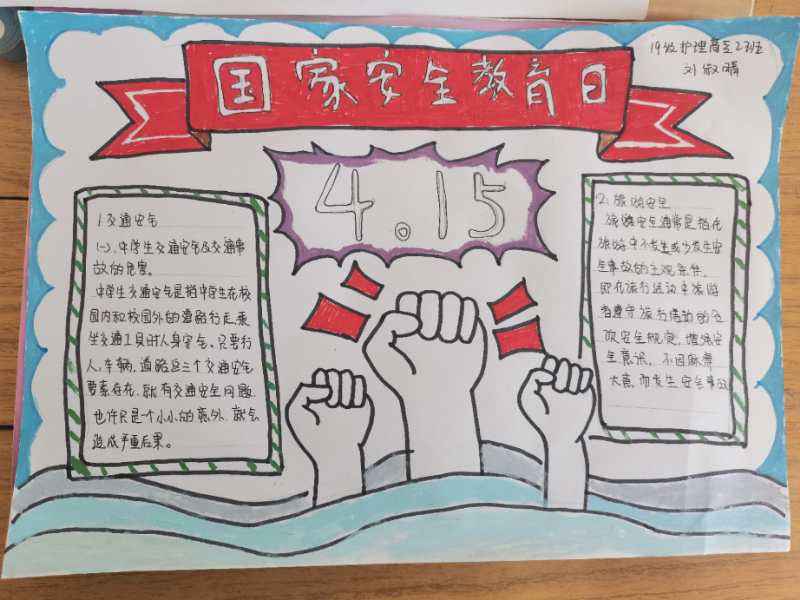 国家安全教育日
19级护理高至2班
刘俶晴
4.15
1.交通安全
(一).中学生交通安全及交通事
故的危害。
中学生交通安全是指中学生在校
园内和校园外的道路行走、乘
坐交通工具时人身安全。只要行
人,车辆,道路这三个交通安全
要素存在,就有交通安全问题,
也许只是个小小的意外,就会
造成严重后果。
2.旅游安全
旅游安全通常是指在
旅游中不发生或少发生安
全事故的主观条件,
即在旅行运动中旅游
者遵守旅行活动的各
项安全规定,增强安
全意识,不因麻痹
大意,而发生安全事故